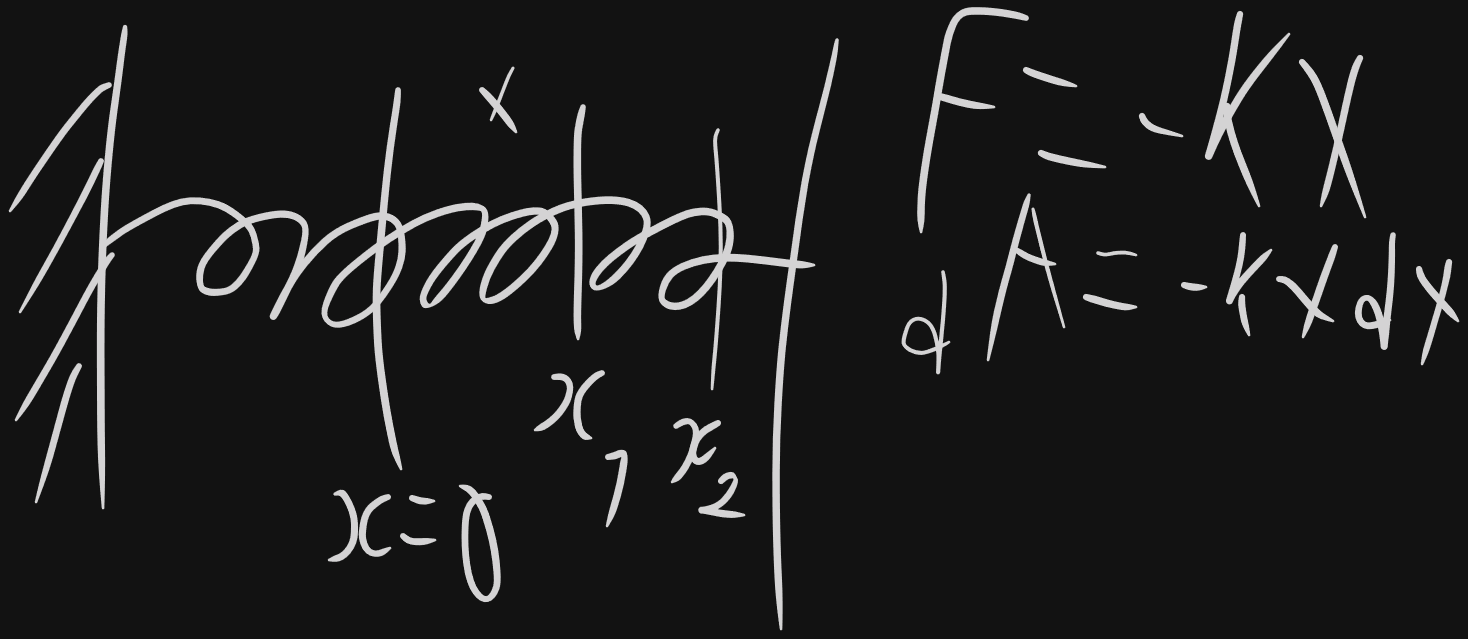 x
x=0
x1
x2
F = -Kx
dA = -kxdx